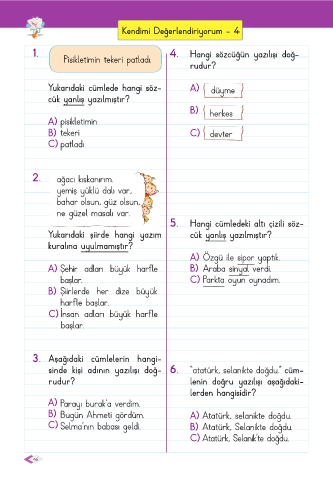 Kendimi Değerlendiriyorum - 4
1.
Pisikletimin tekeri patladı.
Yukarıdaki cümlede hangi söz-
cük yanlış yazılmıştır?
A) pisikletimin
B) tekeri
C) patladı
2.
ağacı kıskanırım.
yemiş yüklü dalı var,
bahar olsun, güz olsun,
ne güzel masalı var.
Yukarıdaki şiirde hangi yazım
kuralına uyulmamıştır?
A) Şehir adları büyük harfle
başlar.
B) Şiirlerde her dize büyük
harfle başlar.
C) İnsan adları büyük harfle
başlar.
3. Aşağıdaki cümlelerin hangi-
sinde kişi adının yazılışı doğ-
rudur?
A) Parayı burak'a verdim.
B) Bugün Ahmeti gördüm.
C) Selma'nın babası geldi.
4. Hangi sözcüğün yazılışı doğ-
rudur?
A) düyme
B) herkes
C) devter
5. Hangi cümledeki altı çizili söz-
cük yanlış yazılmıştır?
A) Özgü ile sipor yaptık.
B) Araba sinyal verdi.
C) Parkta oyun oynadım.
6. "atatürk, selanikte doğdu." cüm-
lenin doğru yazılışı aşağıdaki-
lerden hangisidir?
A) Atatürk, selanikte doğdu.
B) Atatürk, Selanikte doğdu.
C) Atatürk, Selanik'te doğdu.